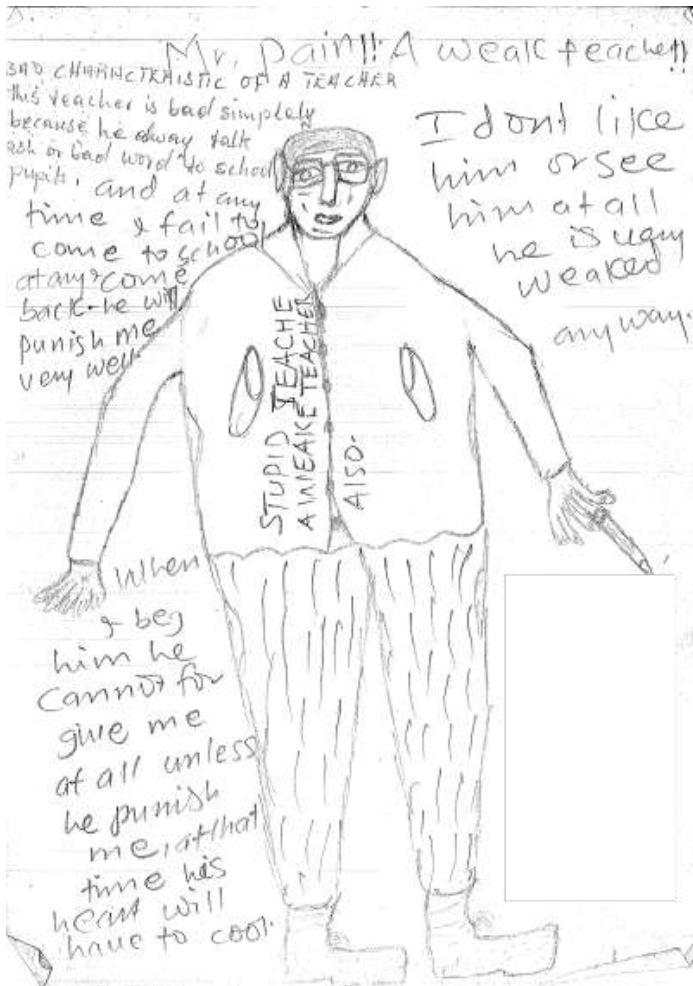 Mr. Pain!! A weak teacher!!
BAD CHARACTERISTIC OF A TEACHER
this teacher is bad simplely
because he alway talk
ash or bad word to school
pupils, and at any
time I fail to
come to school
at any I come
back. he will
punish me
very well.
I dont like
him or see
him at all
he is very
weaked
any way.
STUPID TEACHE
A WEAKE TEACHER
ALSO.
When
I beg
him he
cannot for
give me
at all unless
he punish
me, at that
time his
heart will
have to cool.